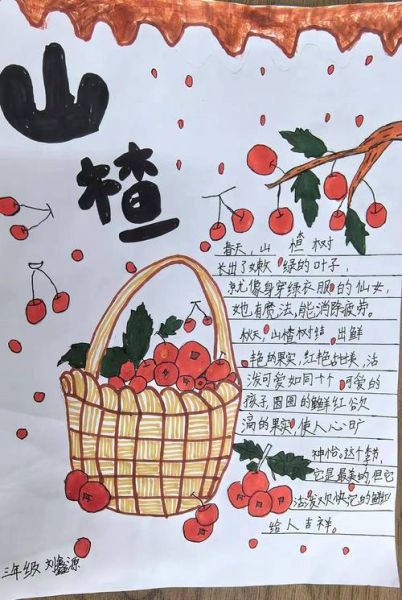 山
楂
春天,山楂树
长出了嫩 绿的叶子,
就像身穿绿衣服的仙女,
她有魔法,能消除疲劳。
秋天,山楂树结出鲜
艳的果实,红艳 活
泼可爱如同个个可爱的
孩子,圆圆的 鲜红欲
滴的果实,使人心旷
神怡。这个季节,
它是最美的,但它
活泼欢快
给人吉祥。
三年级 刘鑫源